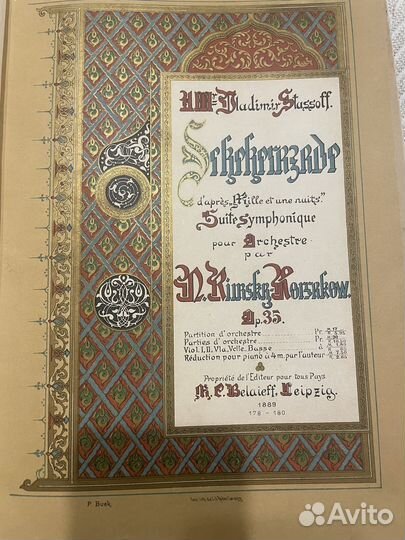 A Mr Vladimir Stassoff.
Scheherazade
d'après „Mille et une nuits."
Suite Symphonique
pour Orchestre
par
N. Rimsky-Korsakow.
Op. 35.
Partition d'orchestre Pr.
Parties d'orchestre Pr.
Viol. I, II, Vla, Velle, Basse à
Réduction pour piano à 4 m. par l'auteur
Propriété de l'Editeur pour tous Pays
M. P. Belaieff, Leipzig.
1889
178 - 180
Avito